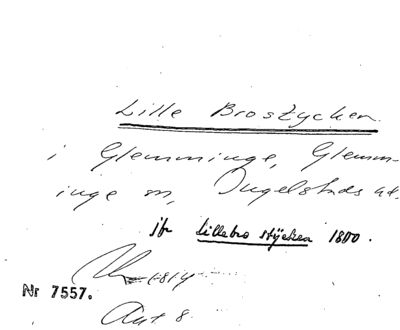 Lille Brostycken.
i Glemminge, Glemm-
inge sn, Ingelstads hd.
jfr Lillebro stÿcken 1800.
1814
Nr 7557.
Akt 8